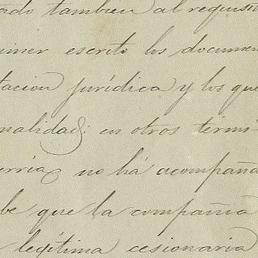 ado tambien al requisi
rimer escrito los documen
tacion jurídica y los que
nalidad: en otros térmi-
erria, no há acompaña
be que la compañia
legítima cesionaria